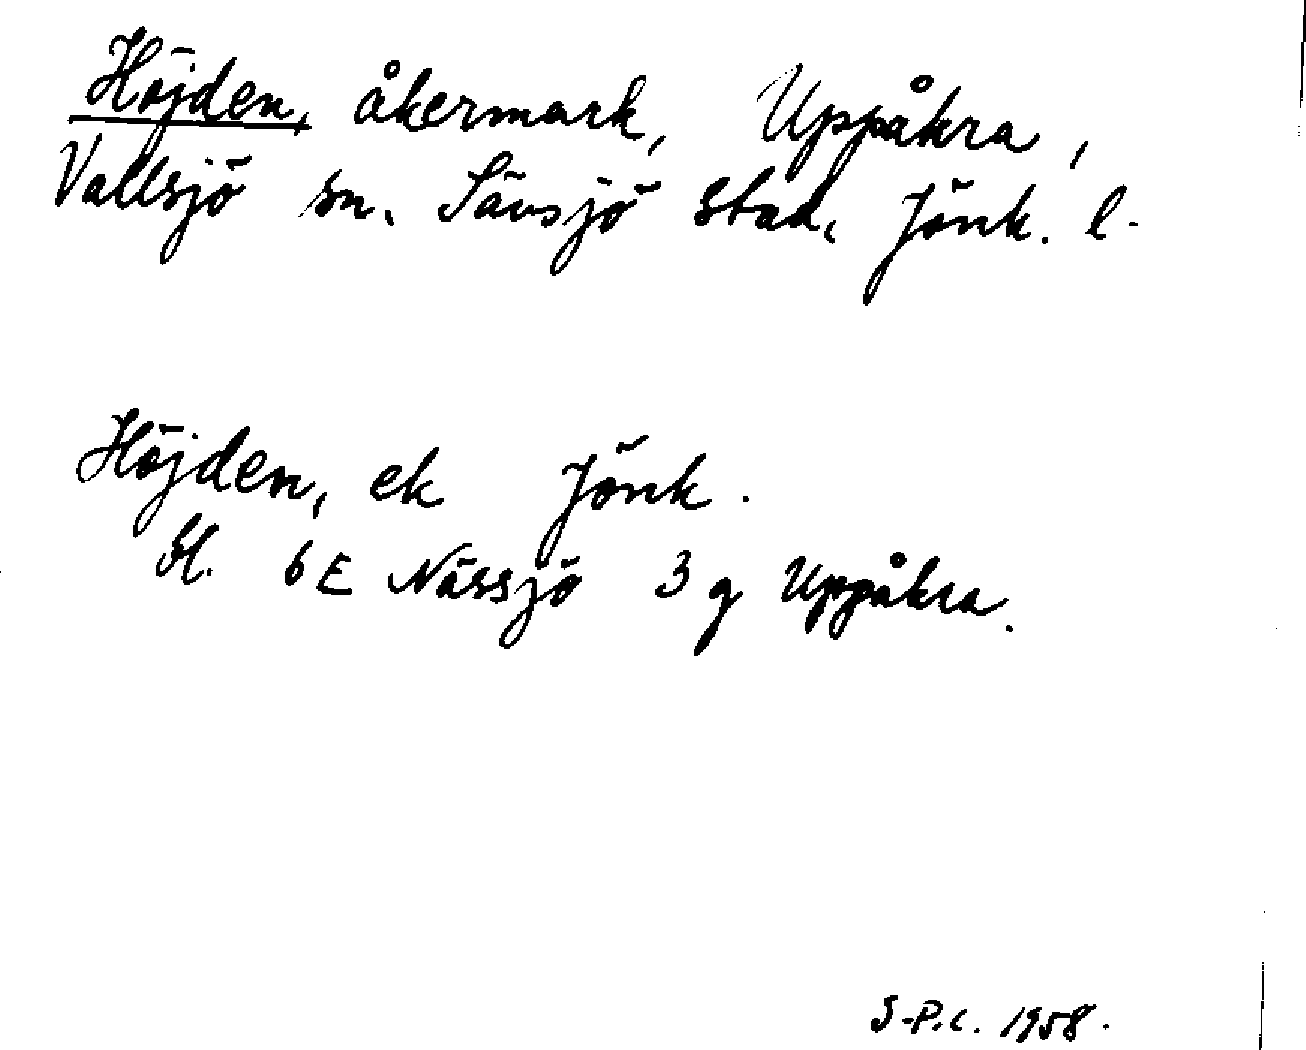 Höjden, åkermark, Uppåkra,
Vallsjö sn. Sävsjö stad, Jönk. l.
Höjden, ek Jönk.
Bl. 6E Nässjö 3 g Uppåkra.
S-P.C. 1958.